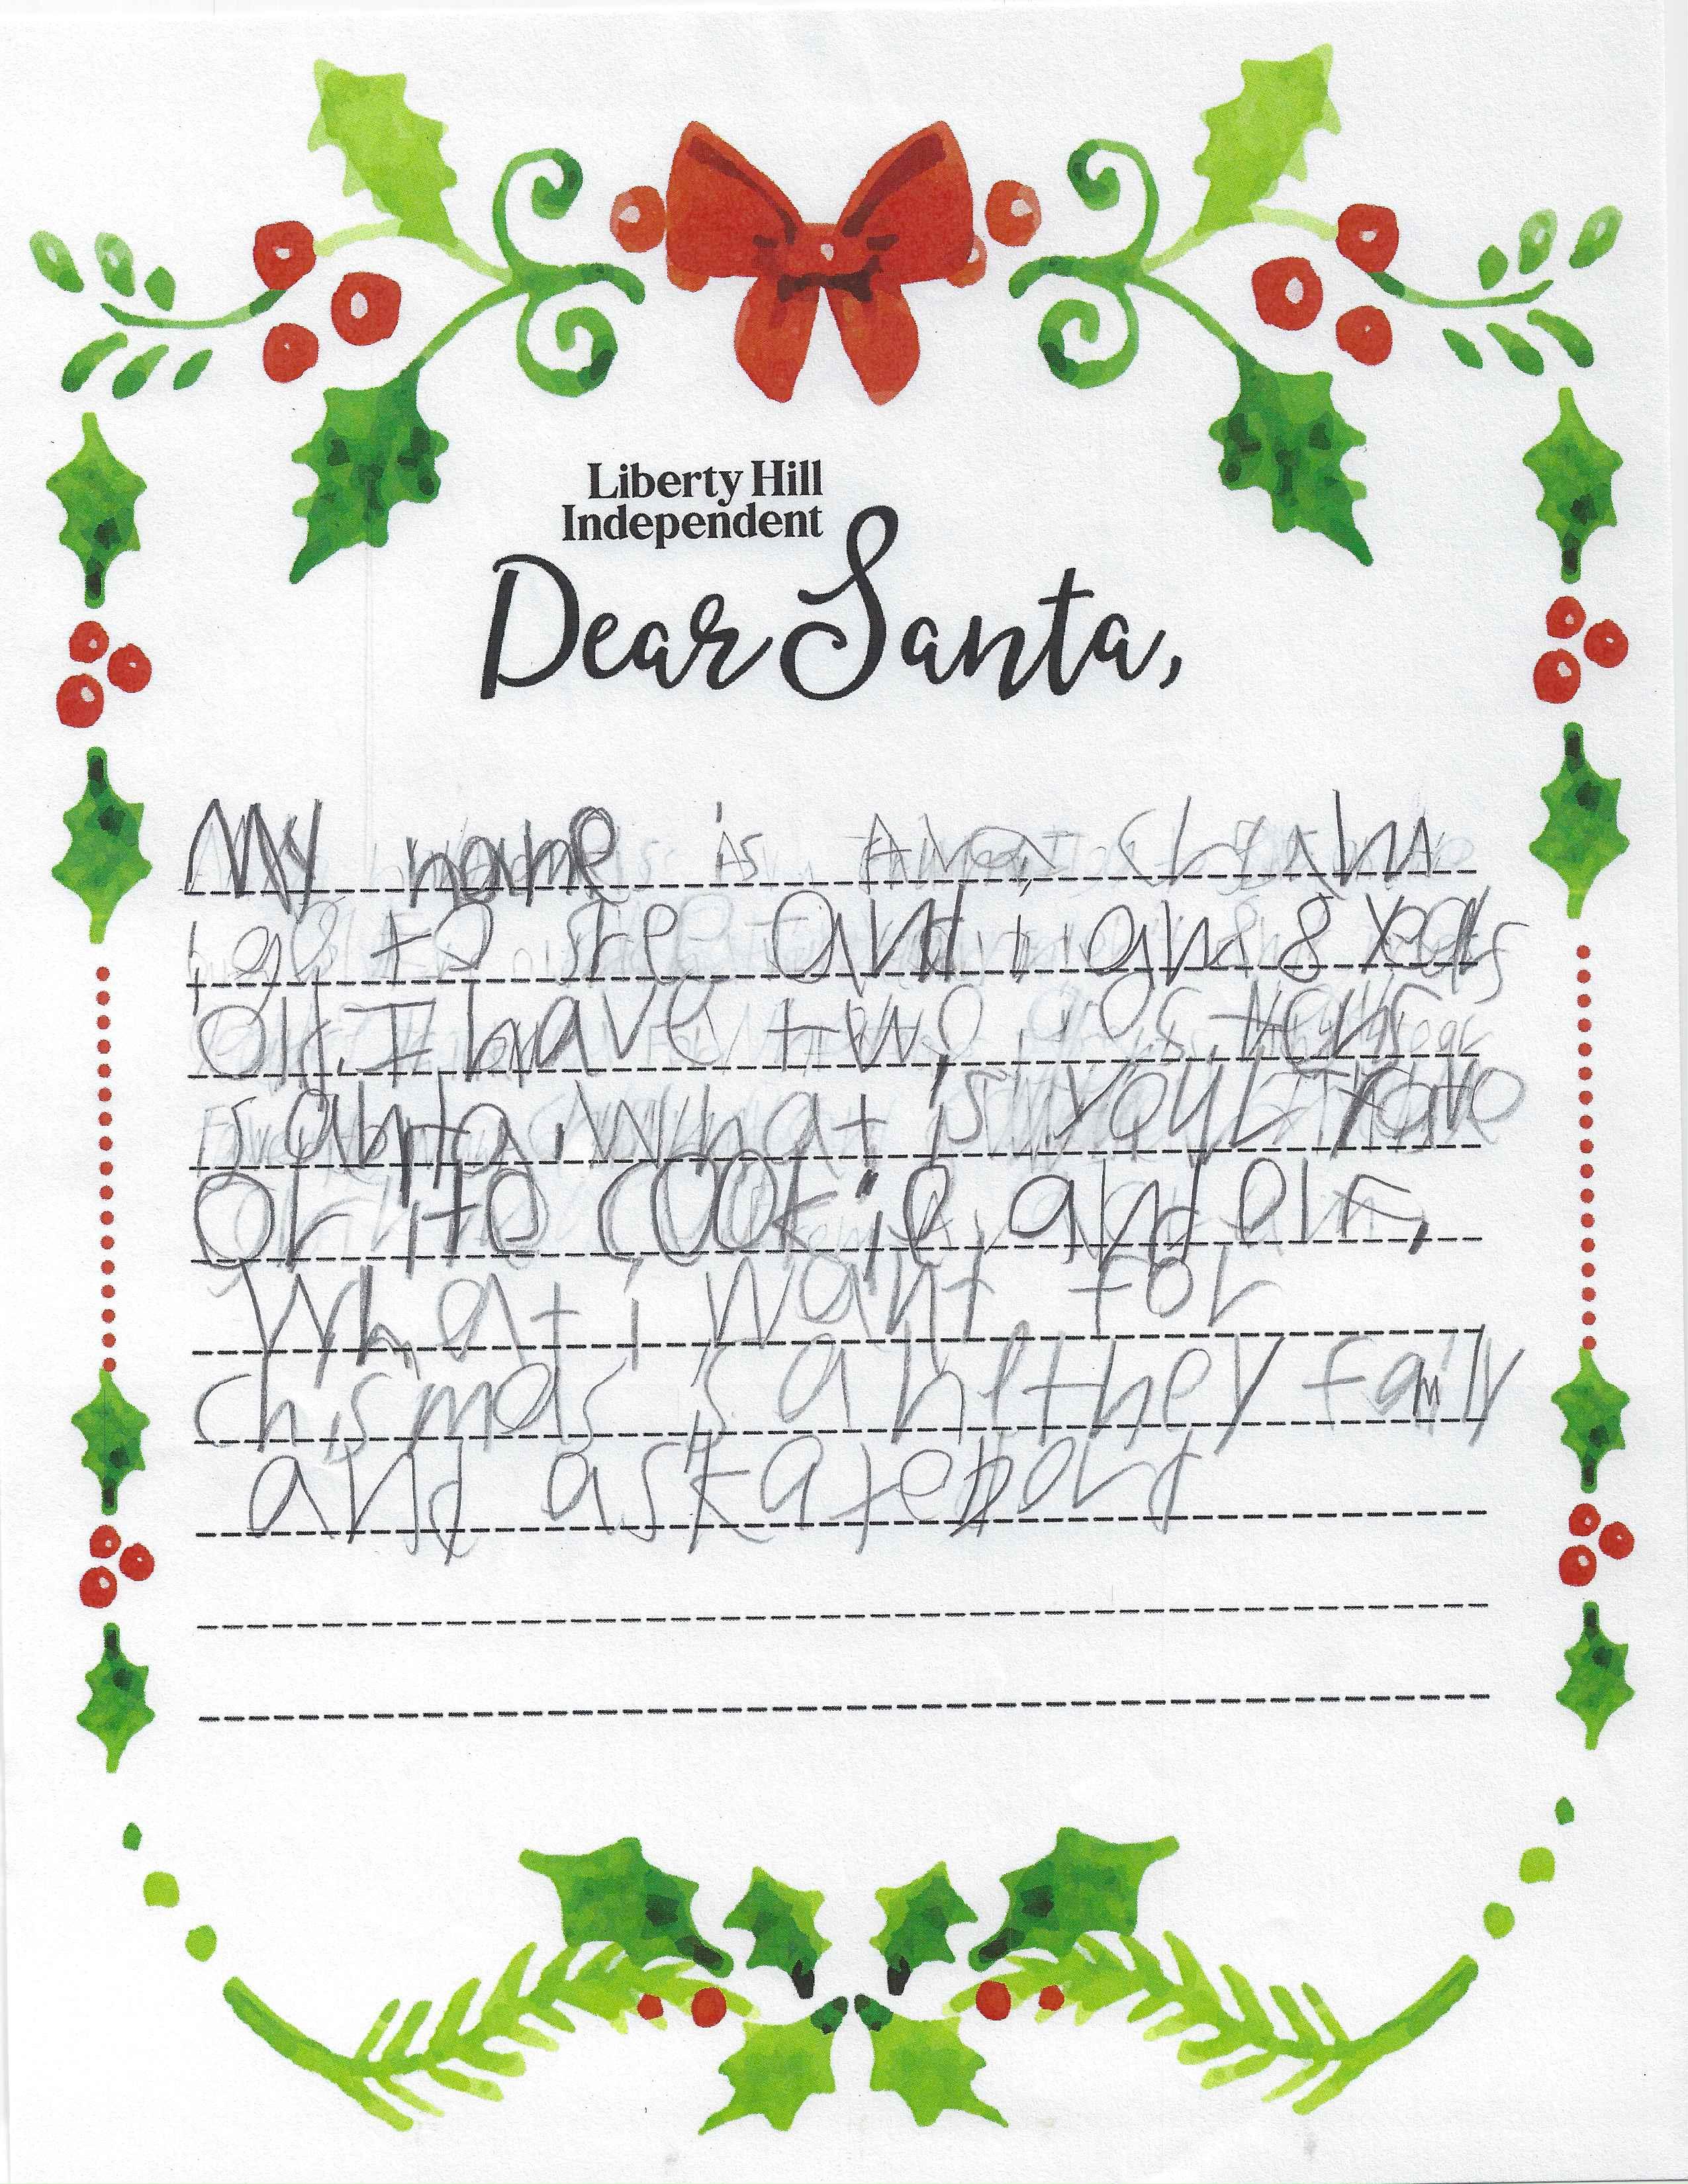 Liberty Hill
Independent
Dear Santa,
My name is
i go to SHE and i am 8 years
old. I have two
santa, what is your fave
orite cookie and elf,
What i want for
chismas is a helthey faimly
and a skatebord